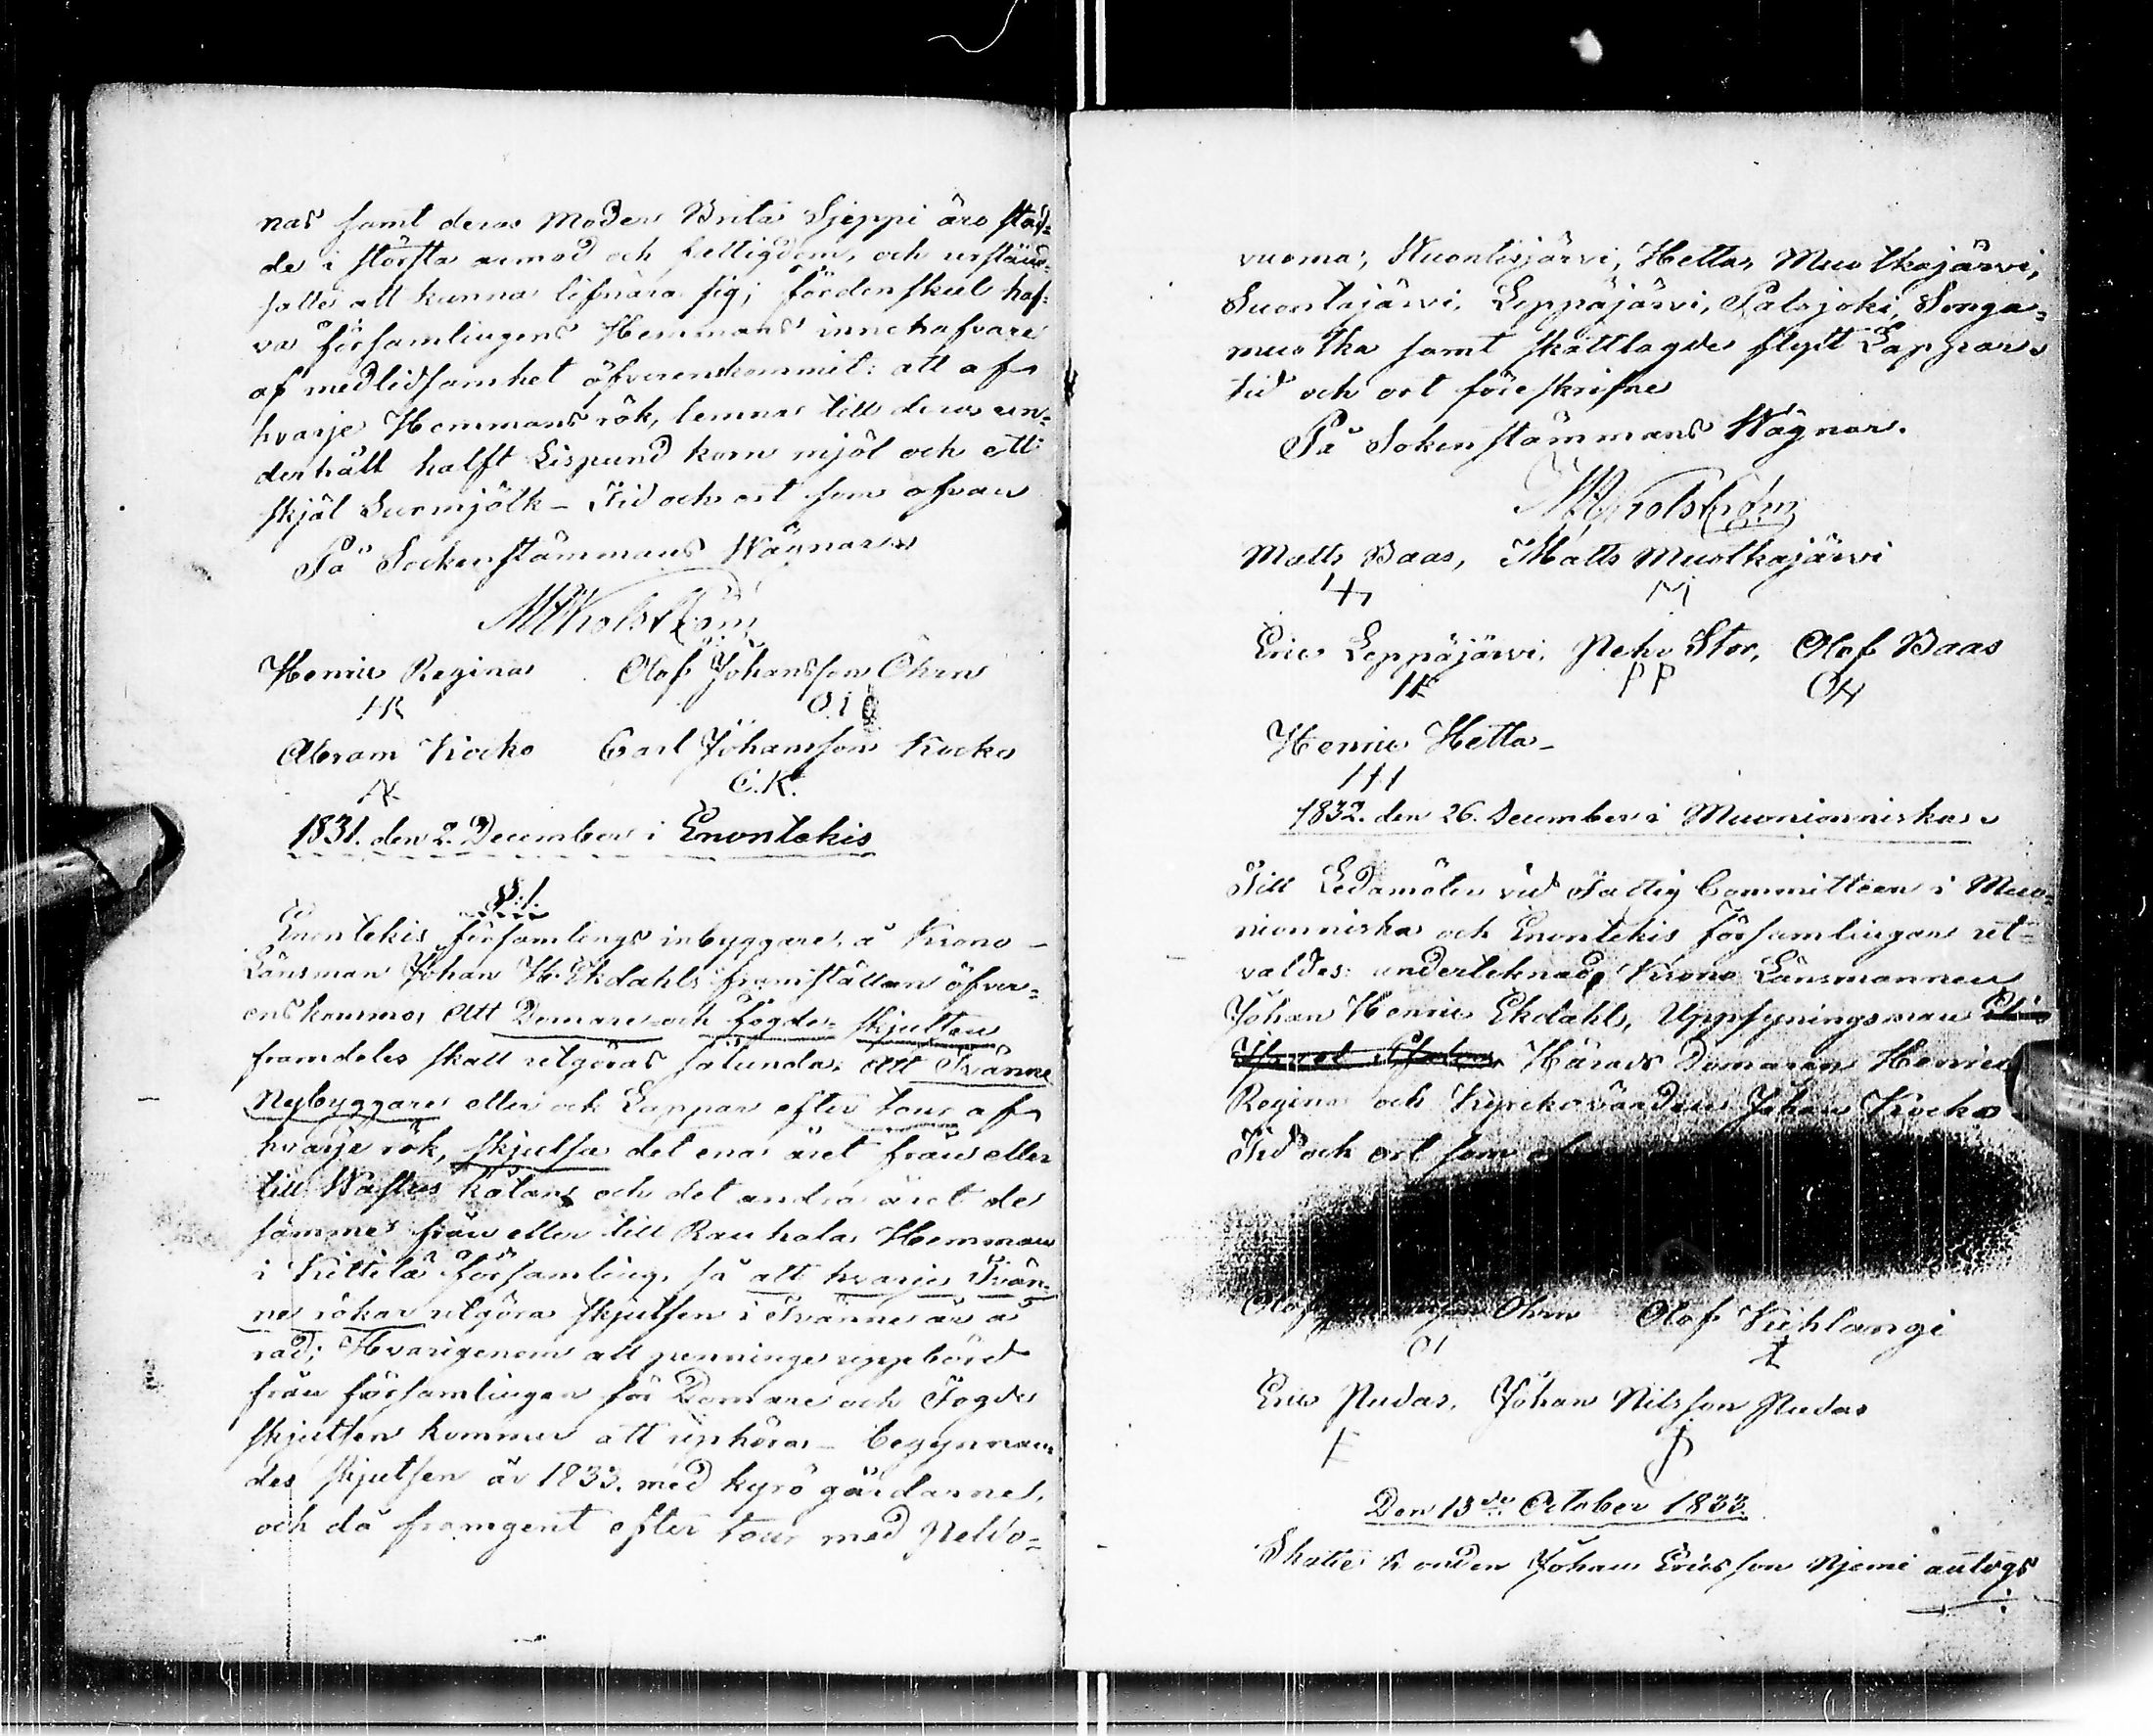 nas samt deras Moder Brita Sjeppi äro stad=
de i största armod och fattigdom, och urståud=
satte att kunna lifnära sig; fördenskul haf=
va församlingens Hemmans innehafvare
af medlidsamhet öfverenskommit: att af
hvarje Hemmans rök, lemna till deras un=
derhåll halft Lispund korn mjöl och ett
skjäl Surmjölk – Tid och ort som ofvan
På Sockenstämmans Wägnar
Henric Regina Olof Johansson Öhrn
HR O.I.Ö
Abram Kocko Carl Johansson Kocko
A C.K.
1831. den 2. December i Enontekis
§.1.
Enontekis församlings inbyggare, å Krono –
Länsman Johan H. Ekdahls framställan öfver=
enskommo, Att Domare- och Fogde- skjutsen
framdeles skall utgöras sålunda; Att Tvänne
Nybyggare eller och Lappar efter tour af
hvarje rök, skjutsa det ena året från eller
till Wastus kåtan, och det andra året de
samme från eller till Rauhala Hemman
i Kittilä församling, så att hvarje Tvän-
ne rökar utgöra skjutsen i Tvänne år å
rad; Hvarigenom all penninge uppbörd
från församlingen för Domare och Fogde
skjutsen kommer att uphöra – begynnan=
des skjutsen år 1833. med kyrö gårdarne,
och då framgent efter tour med Pelvo=
vuoma, Wuontisjärvi, Hetta, Muotkajärvi,
Suontajärvi, Leppäjärvi, Palojoki, Songa=
muotka samt skattlagde flytt Lappars
tid och ort föreskrifne
På Sokenstämmans Wägnar.
Matts Baas, Matts Muotkajärvi
M
Eric Leppäjärvi, Pehr Stor, Olof Baas
E P P
Henric Hetta –
H
1832. den 26. December i Muonionniska
Till Ledamöter vid Fattig Committeen i Muo=
nionniska och Enontekis Församlingar ut=
valdes: undertecknad, Krono Länsmannen
Johan Henric Ekdahl, Uppsyningsman
Härads Domaren Henric
Regina och Kyrkovärden Johan Kocko
Tid och ort som
Olof Öhrn Olof Kihlangi
OI
Eric Rudas, Johan Nilsson Rudas
E
Den 13de October 1833.
Skatte bonden Johan Ericsson Njemi antogs